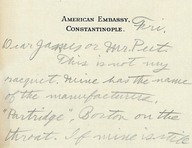 AMERICAN EMBASSY.
CONSTANTINOPLE.
Fri.
Dear James or Mr. Peet
This is not my
racquet. Mine has the name
of the manufacturers,
Partridge, Boston on the
throat. If mine is still